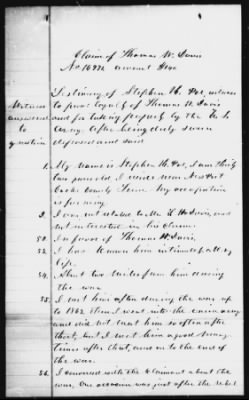 Claim of Thomas W. Davis
No 16976 amount $
Testimony of Stephen H. witness
to prove loyalty of Thomas W. Davis
and for taking property by the U.S.
Army. After being duly sworn
deposed and said
Witness
answered
to
question
1. My Name is Stephen H. I am thirty
two years old I reside near New Port
Cocke County Tenn. My occupation
is farming
2. I am not related to Mr. T. W. Davis, and
not interested in his claim.
50. In favor of Thomas W. Davis,
52. I have known him intimately all my
life.
54. About two miles from him during
the war.
55. I met him often during the war up
to 1862 then I went into the army
and did not meet him so often after
that, but I met him a good many
times after that, and on to the end of
the war.
56. I conversed with the Claimant about the
war. One occasion was just after the rebel